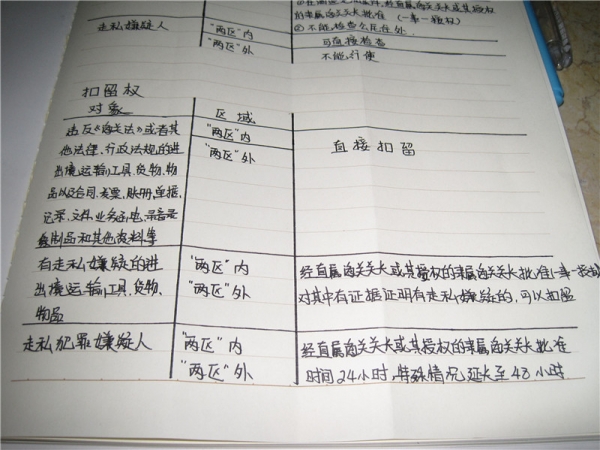 经直属海关关长或其授权
的隶属海关关长批准（一事一授权）
② 不能检查公民住处
走私嫌疑人 "两区"内 可直接检查
"两区"外 不能行使
扣留权
对象 区域
违反《海关法》或者其 "两区"内
他法律、行政法规的进 "两区"外 直接扣留
出境运输工具、货物、物
品以及合同、发票、账册、单据、
记录、文件、业务函电、录音录
像制品和其他资料等
有走私嫌疑的进 "两区"内 经直属海关关长或其授权的隶属海关关长批准（一事一授权）
出境运输工具、货物、 "两区"外 对其中有证据证明有走私嫌疑的，可以扣留
物品
走私犯罪嫌疑人 "两区"内 经直属海关关长或其授权的隶属海关关长批准
"两区"外 时间24小时，特殊情况延长至48小时